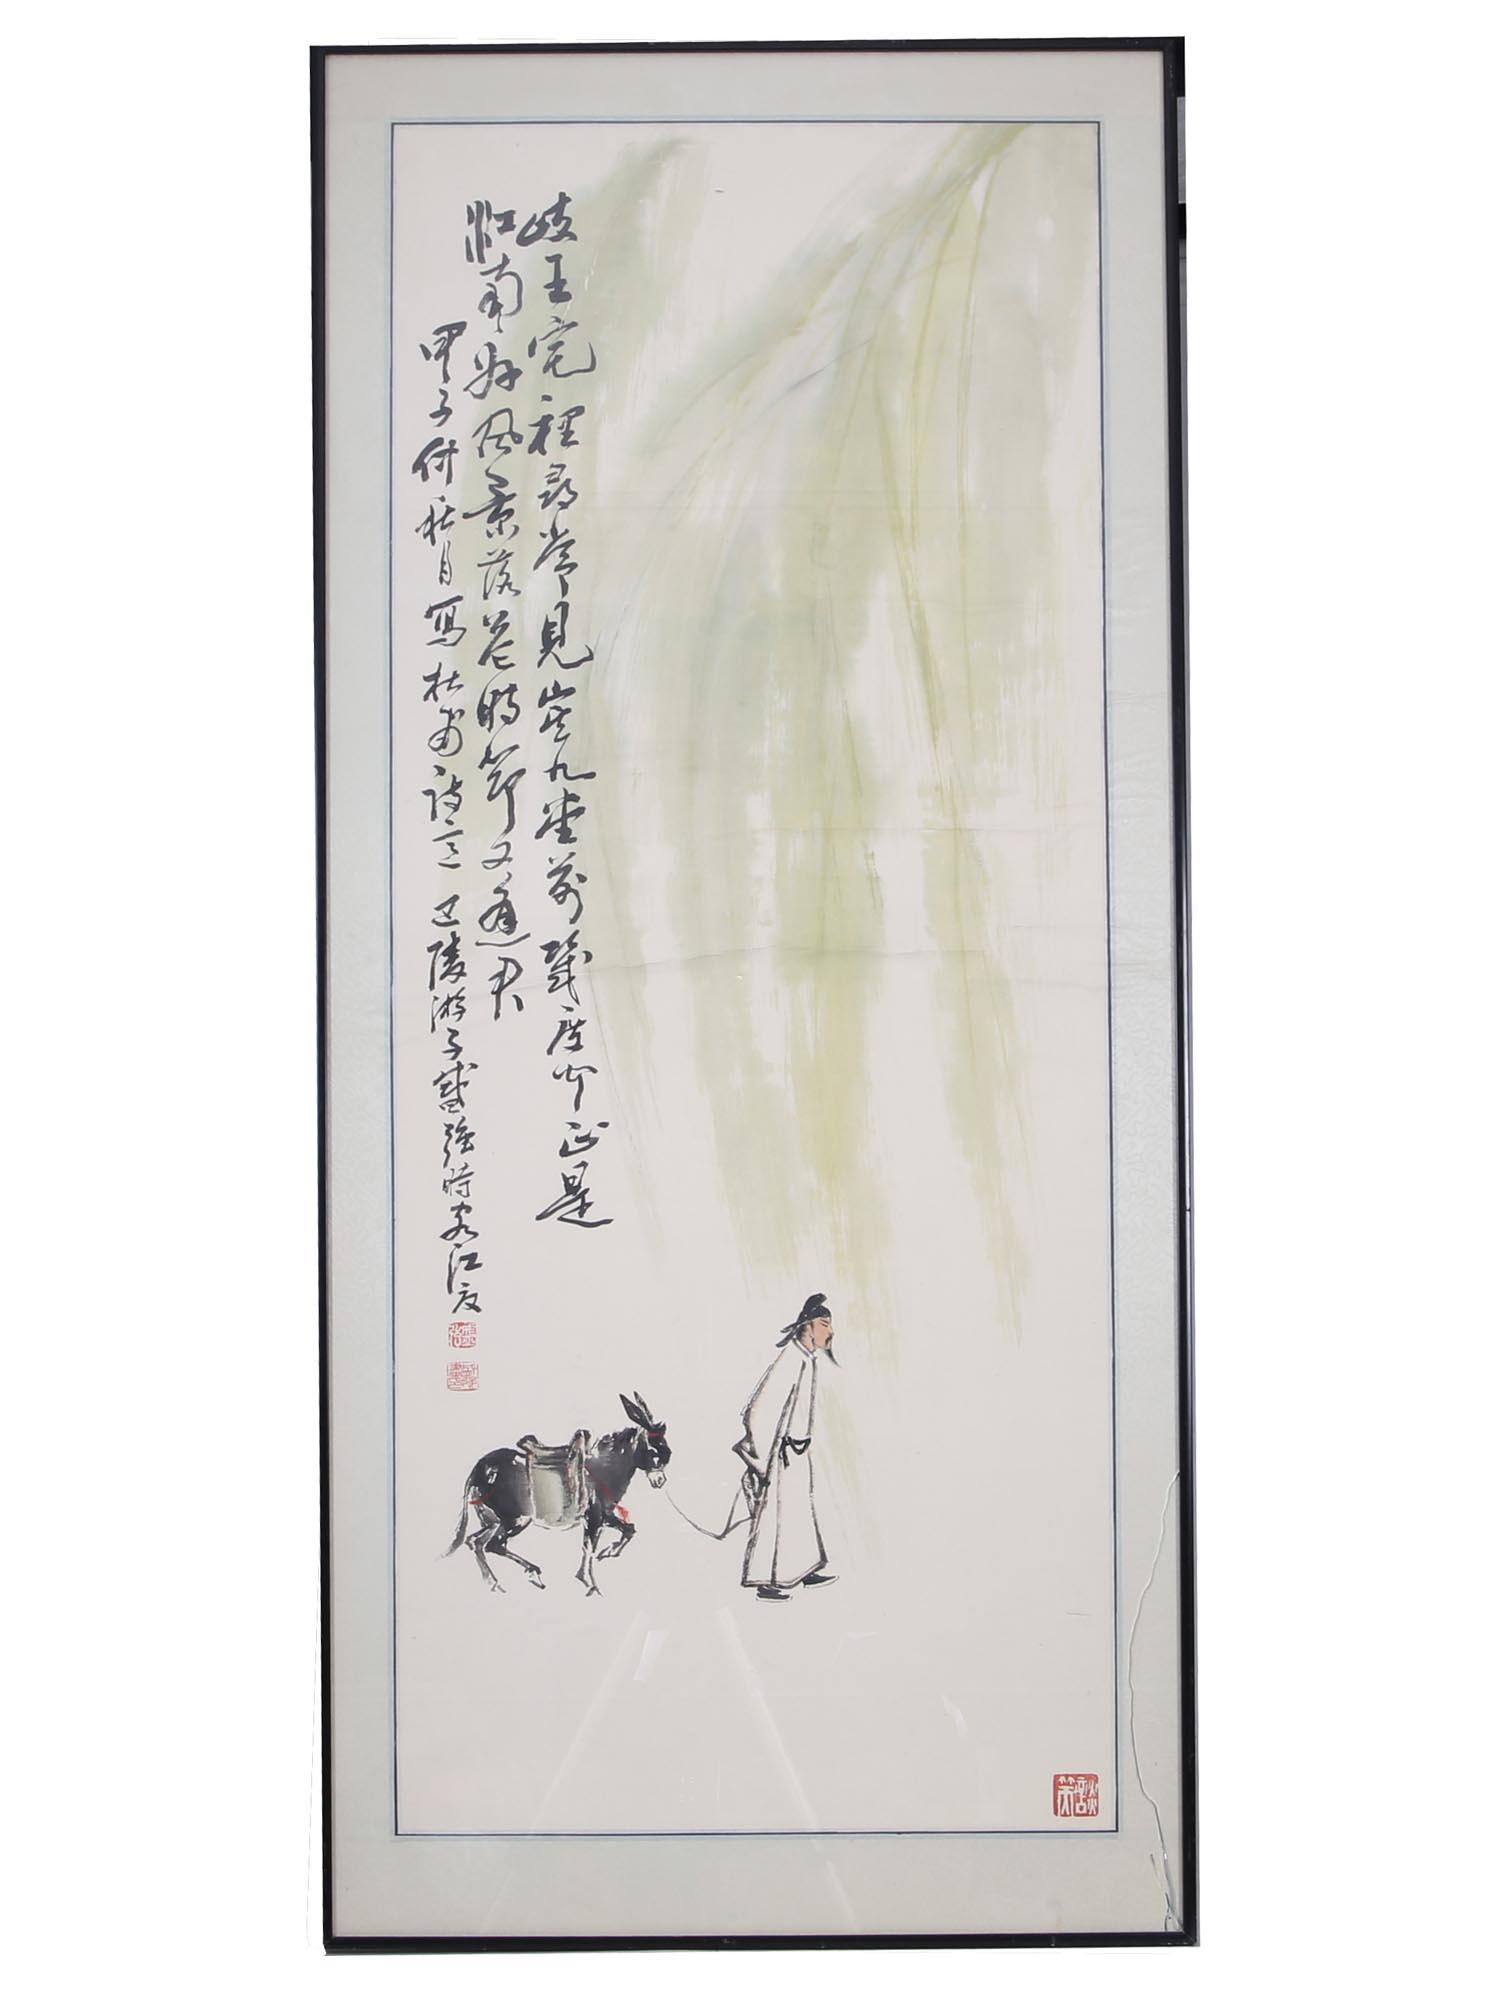 岐王宅裡尋常見崔九堂前幾度聞正是
江南好風景落花時節又逢君
甲子併秋月寫杜甫詩意 巴陵游子 強時客江夏
談笑